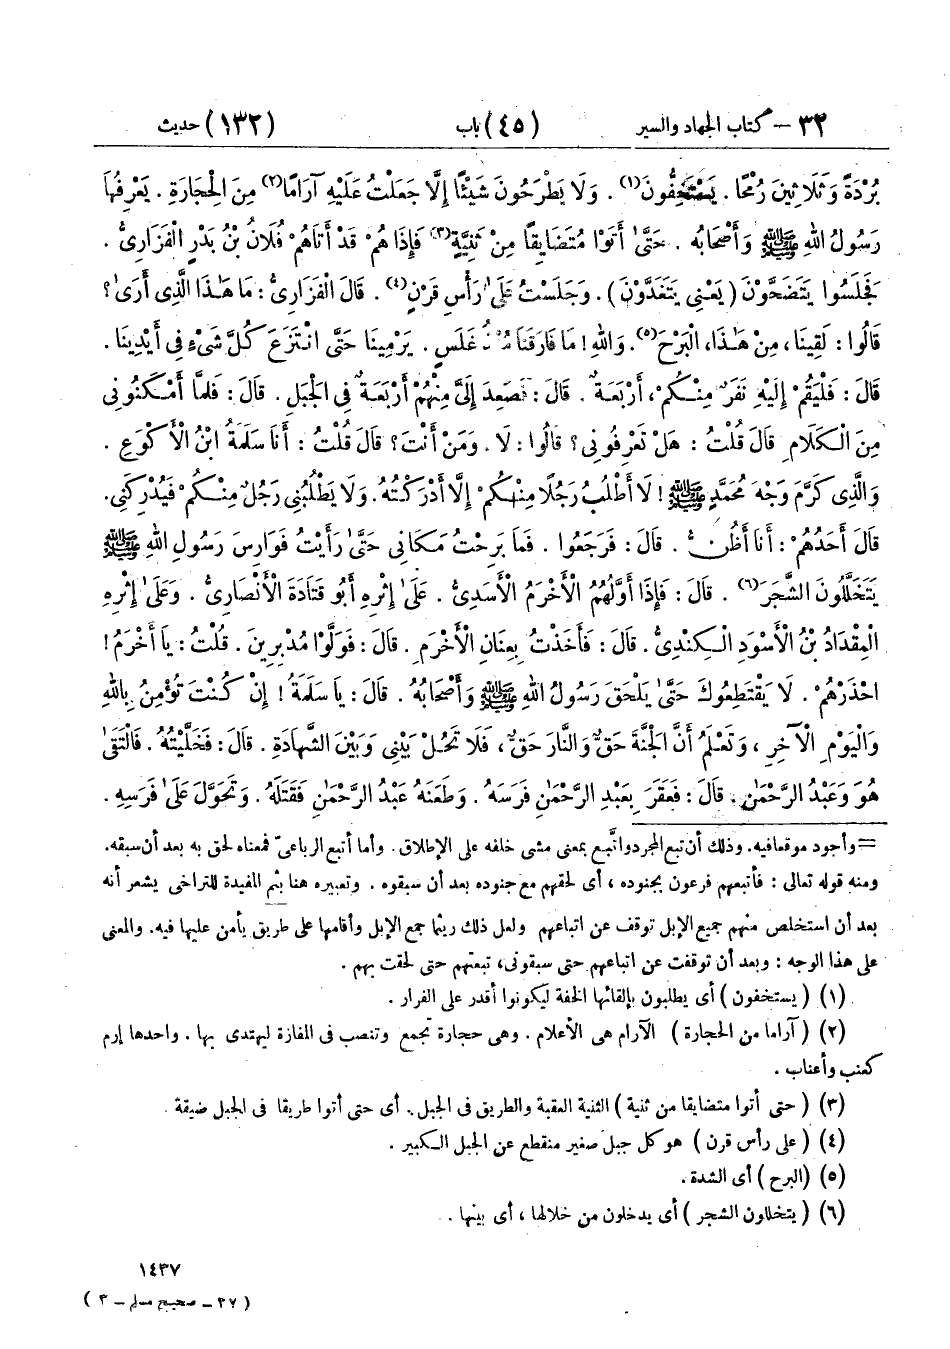 ٣٢ – كتاب الجهاد والسير (٤٥) باب (١٣٢) حديث
بُرْدَةً وَثَلَاثِينَ رُمْحًا . يَسْتَخِفُّونَ(١) . وَلَا يَطْرَحُونَ شَيْئًا إِلَّا جَعَلْتُ عَلَيْهِ آرَامًا(٢) مِنَ الْحِجَارَةِ . يَعْرِفُهَا
رَسُولُ اللهِ ﷺ وَأَصْحَابُهُ . حَتَّىٰ أَتَوْا مُتَضَايِقًا مِنْ ثَنِيَّةٍ(٣) فَإِذَا هُمْ قَدْ أَتَاهُمْ فُلَانُ بْنُ بَدْرٍ الْفَزَارِىُّ .
فَجَلَسُوا يَتَضَحَّوْنَ ( يَعْنِى يَتَغَدَّوْنَ ) . وَجَلَسْتُ عَلَىٰ رَأْسِ قَرْنٍ(٤) . قَالَ الْفَزَارِىُّ : مَا هَٰذَا الَّذِى أَرَىٰ ؟
قَالُوا : لَقِينَا ، مِنْ هَٰذَا، الْبَرْحَ(٥). وَاللهِ ! مَا فَارَقَنَا مُنْذُ غَلَسٍ . يَرْمِينَا حَتَّى انْتَزَعَ كُلَّ شَىْءٍ فِى أَيْدِينَا .
قَالَ : فَلْيَقُمْ إِلَيْهِ نَفَرٌ مِنْكُمْ، أَرْبَعَةٌ . قَالَ : فَصَعِدَ إِلَىَّ مِنْهُمْ أَرْبَعَةٌ فِى الْجَبَلِ . قَالَ : فَلَمَّا أَمْكَنُونِى
مِنَ الْكَلَامِ قَالَ قُلْتُ : هَلْ تَعْرِفُونِى ؟ قَالُوا : لَا . وَمَنْ أَنْتَ ؟ قَالَ قُلْتُ : أَنَا سَلَمَةُ ابْنُ الْأَكْوَعِ .
وَالَّذِى كَرَّمَ وَجْهَ مُحَمَّدٍ ﷺ ! لَا أَطْلُبُ رَجُلًا مِنْكُمْ إِلَّا أَدْرَكْتُهُ. وَلَا يَطْلُبُنِى رَجُلٌ مِنْكُمْ فَيُدْرِكَنِى.
قَالَ أَحَدُهُمْ : أَنَا أَظُنُّ . قَالَ : فَرَجَعُوا . فَمَا بَرِحْتُ مَكَانِى حَتَّىٰ رَأَيْتُ فَوَارِسَ رَسُولِ اللهِ ﷺ
يَتَخَلَّلُونَ الشَّجَرَ(٦) . قَالَ : فَإِذَا أَوَّلُهُمُ الْأَخْرَمُ الْأَسَدِىُّ . عَلَىٰ إِثْرِهِ أَبُو قَتَادَةَ الْأَنْصَارِىُّ . وَعَلَىٰ إِثْرِهِ
الْمِقْدَادُ بْنُ الْأَسْوَدِ الْكِنْدِىُّ . قَالَ : فَأَخَذْتُ بِعِنَانِ الْأَخْرَمِ . قَالَ : فَوَلَّوْا مُدْبِرِينَ . قُلْتُ : يَا أَخْرَمُ !
احْذَرْهُمْ . لَا يَقْتَطِعُوكَ حَتَّىٰ يَلْحَقَ رَسُولُ اللهِ ﷺ وَأَصْحَابُهُ . قَالَ : يَا سَلَمَةُ ! إِنْ كُنْتَ تُؤْمِنُ بِاللهِ
وَالْيَوْمِ الْآخِرِ ، وَتَعْلَمُ أَنَّ الْجَنَّةَ حَقٌّ وَالنَّارَ حَقٌّ ، فَلَا تَحُلْ بَيْنِى وَبَيْنَ الشَّهَادَةِ . قَالَ : فَخَلَّيْتُهُ . فَالْتَقَىٰ
هُوَ وَعَبْدُ الرَّحْمَٰنِ . قَالَ : فَعَقَرَ بِعَبْدِ الرَّحْمَٰنِ فَرَسَهُ . وَطَعَنَهُ عَبْدُ الرَّحْمَٰنِ فَقَتَلَهُ . وَتَحَوَّلَ عَلَىٰ فَرَسِهِ .
= وأجود موقعا فيه. وذلك أن تبع المجرد واتّبع بمعنى مشى خلفه على الإطلاق . وأما أتبع الرباعىّ فمعناه لحق به بعد أن سبقه.
ومنه قوله تعالى : فأتبعهم فرعون بجنوده ، أى لحقهم مع جنوده بعد أن سبقوه . وتعبيره هنا بثم المفيدة للتراخى يشعر أنه
بعد أن استخلص منهم جميع الإبل توقف عن اتباعهم ولعل ذلك ريثما جمع الإبل وأقامها على طريق يأمن عليها فيه. والمعنى
على هذا الوجه : وبعد أن توقفت عن اتباعهم حتى سبقونى، تبعتهم حتى لحقت بهم .
(١) ( يستخفون ) أى يطلبون بإلقائها الخفة ليكونوا أقدر على الفرار .
(٢) ( آراما من الحجارة ) الآرام هى الأعلام . وهى حجارة تجمع وتنصب فى المفازة ليهتدى بها . واحدها إرم
كعنب وأعناب .
(٣) ( حتى أتوا متضايقا من ثنية ) الثنية العقبة والطريق فى الجبل . أى حتى أتوا طريقا فى الجبل ضيقة .
(٤) ( على رأس قرن ) هو كل جبل صغير منقطع عن الجبل الكبير .
(٥) ( البرح ) أى الشدة .
(٦) ( يتخللون الشجر ) أى يدخلون من خلالها ، أى بينها .
١٤٣٧
( ٢٧ – صحيح مسلم – ٣ )